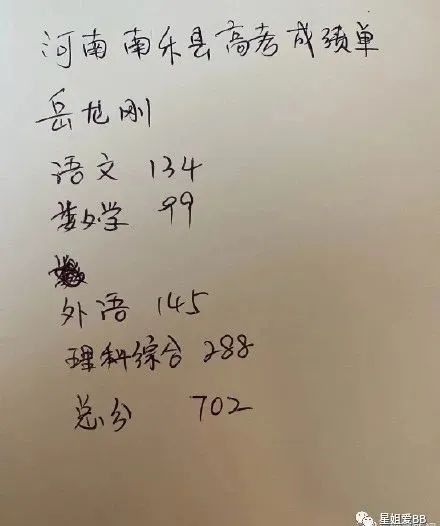 河南南乐县高考成绩单
岳龙刚
语文 134
数学 99
外语 145
理科综合 288
总分 702
星姐爱BB